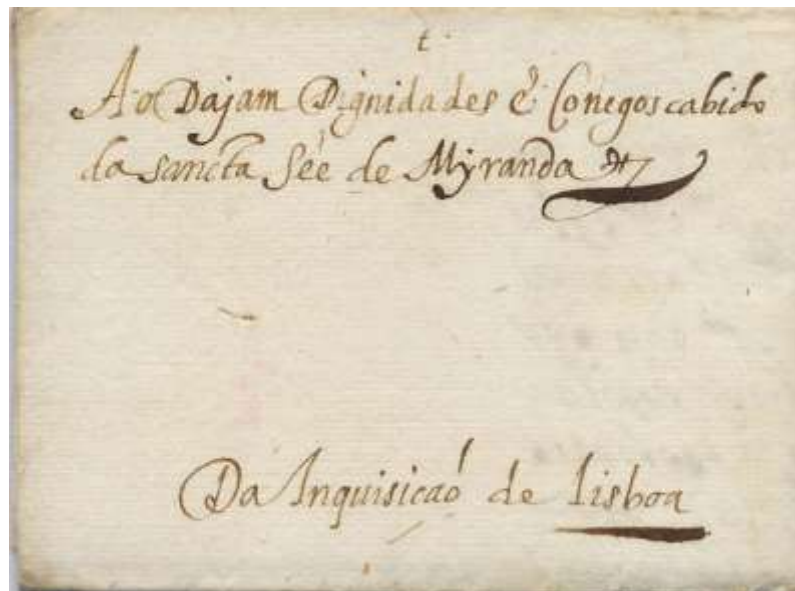 t
Ao Dajam Dignidades e Conegos cabido
da sancta Séé de Myranda &
Da Inquisicaó de lisboa